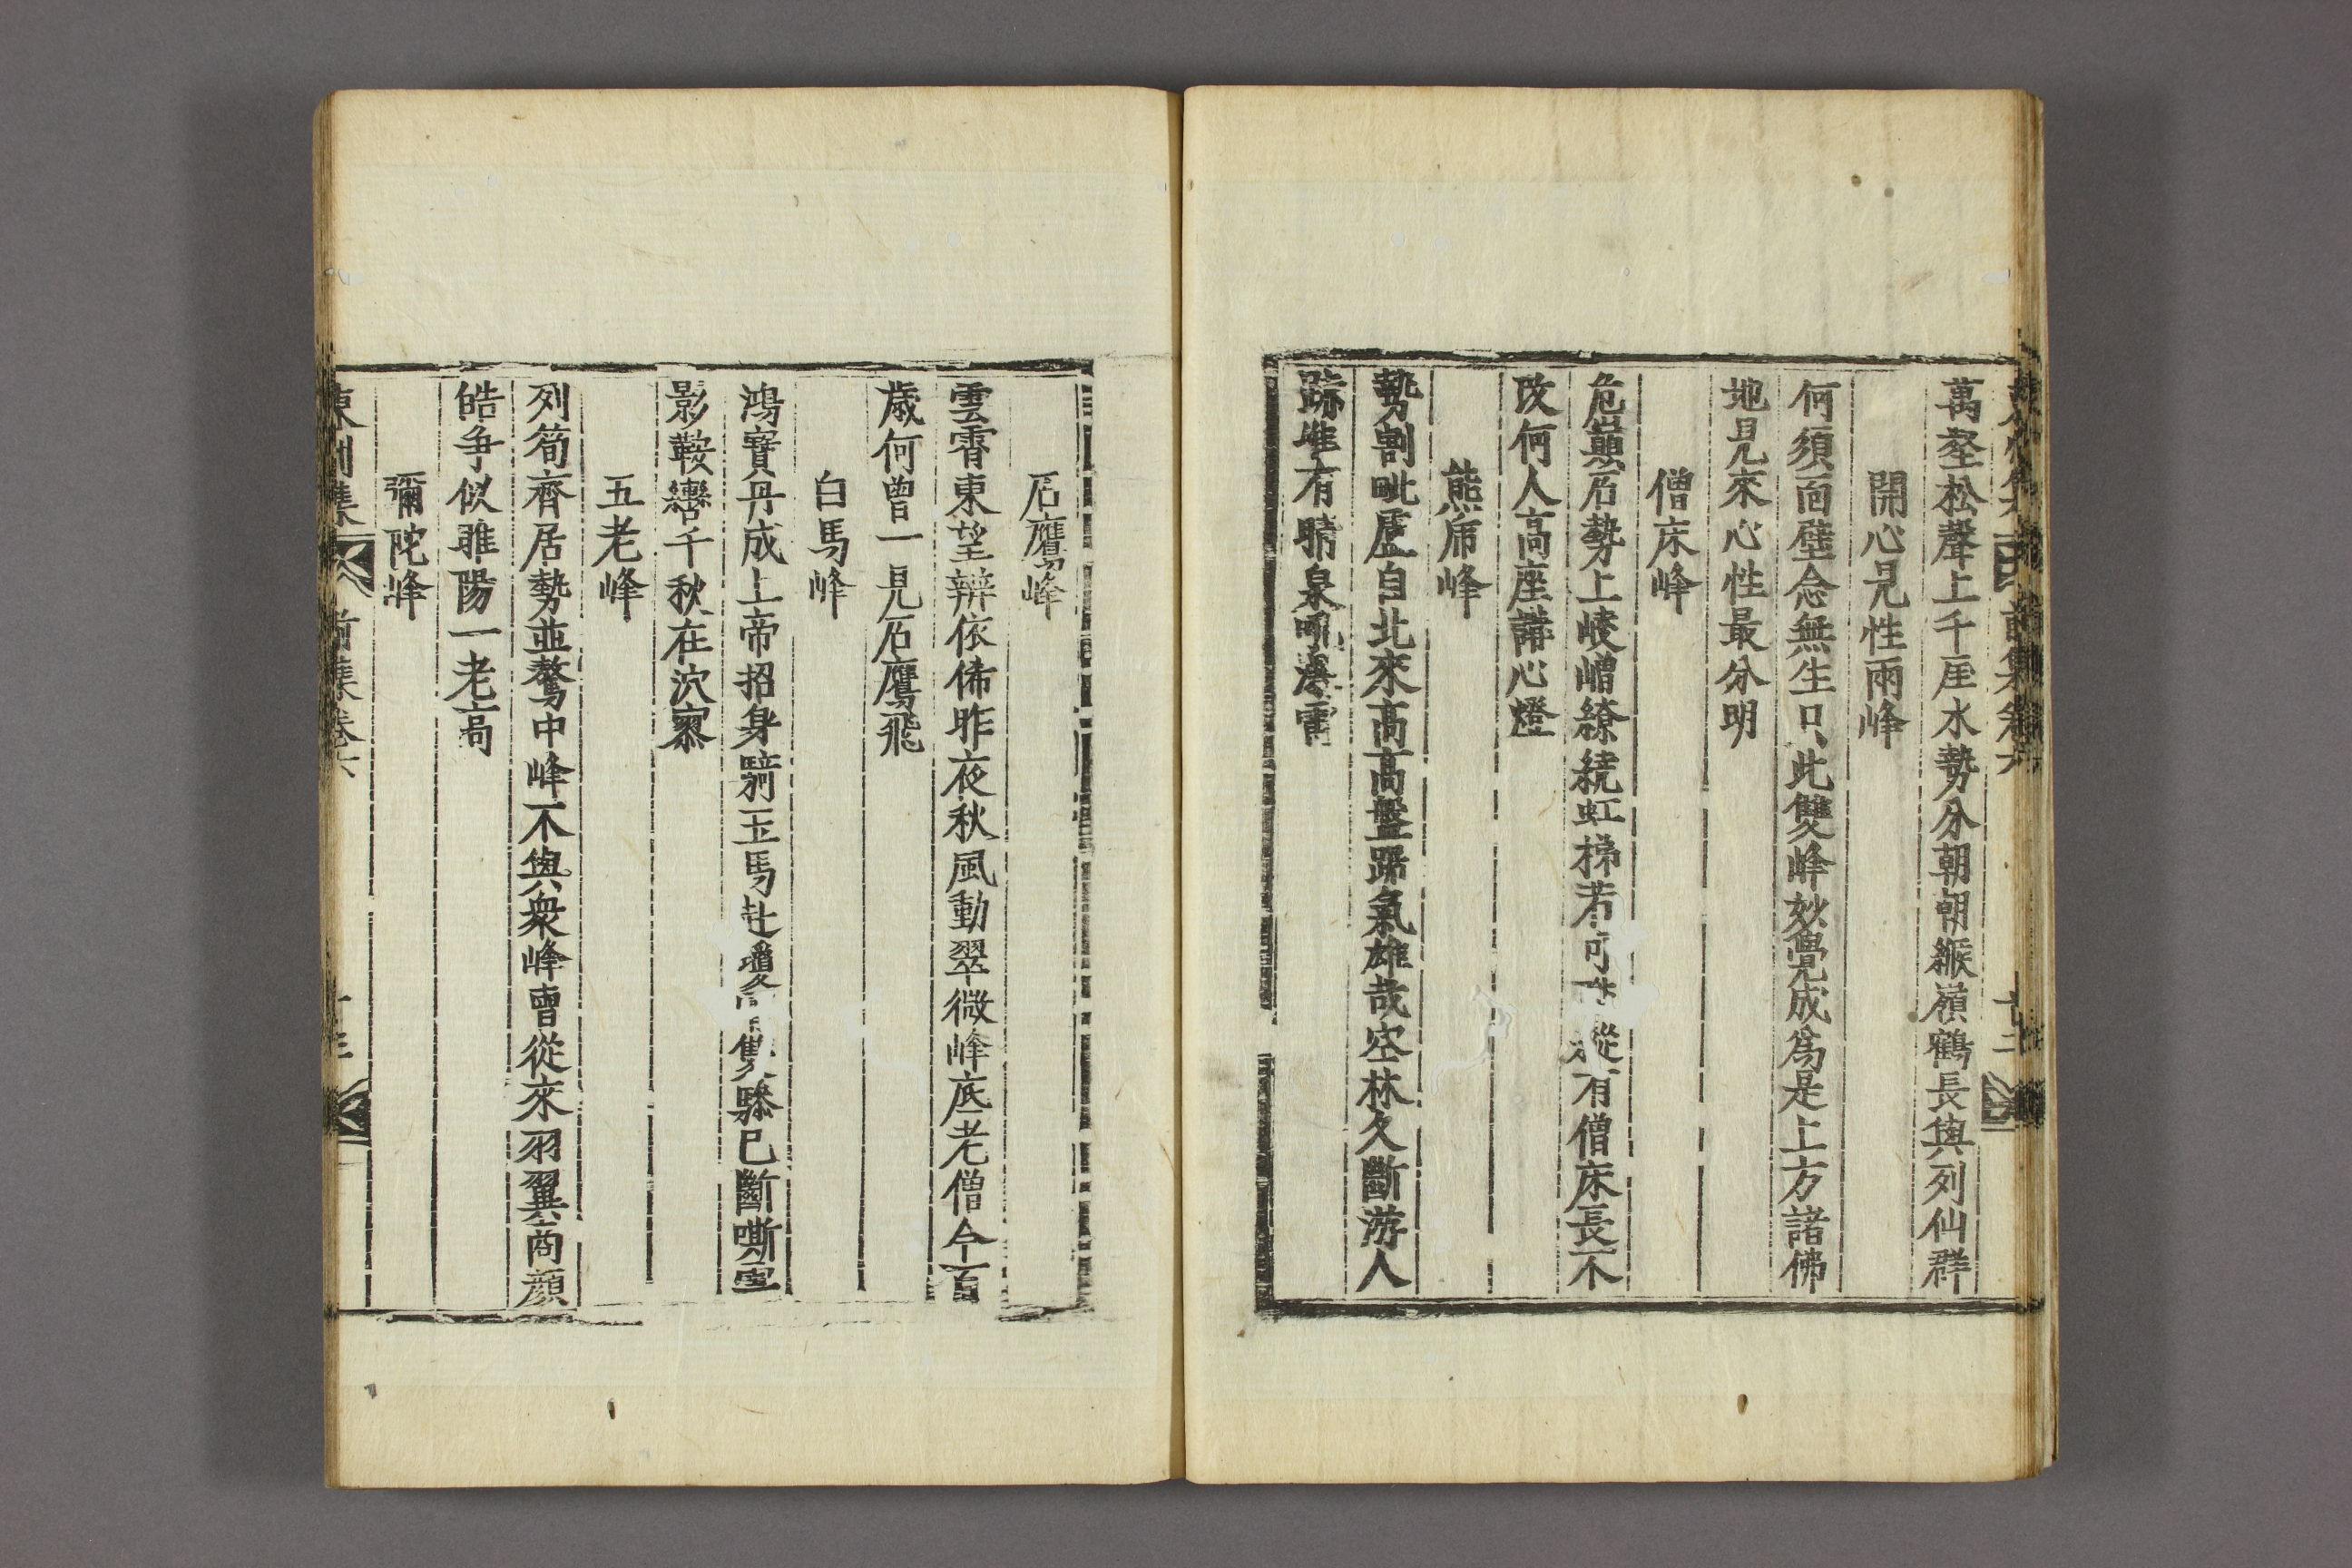 萬壑松聲上千厓水勢分朝朝緱嶺鶴長與列仙群
開心見性兩峰
何須面壁念無生只此雙峰妙覺成爲是上方諸佛
地見來心性最分明
僧床峰
危巔石勢上崚嶒繚繞虹梯若可縱有僧床長不
改何人高座講心燈
熊席峰
勢割毗盧自北來高高盤踞氣雄哉空林久斷游人
跡唯有晴泉吼瀑雷
石鷹峰
雲霄東望辨依俙昨夜秋風動翠微峰底老僧今百
歲何曾一見石鷹飛
白馬峰
鴻寶丹成上帝招身騎玉馬赴雙驂已斷嘶雲
影鞍轡千秋在泬寥
五老峰
列筍齊居勢並驁中峰不與衆峰曹從來羽翼商顔
皓爭似睢陽一老高
彌陀峰
東州集 前集卷六